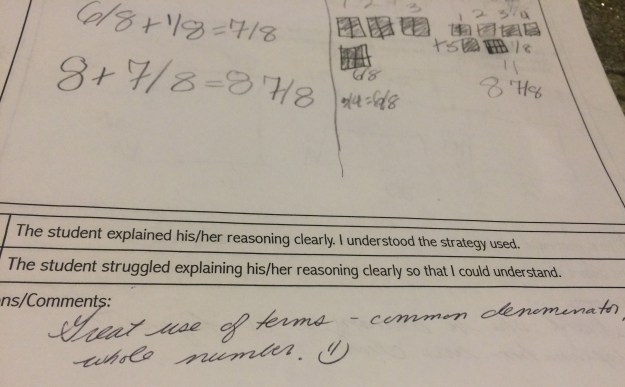 6/8 + 1/8 = 7/8
8 + 7/8 = 8 7/8
3
6/8
3/4 = 6/8
1 2 3 4
+ 5 1/8
8 7/8
The student explained his/her reasoning clearly. I understood the strategy used.
The student struggled explaining his/her reasoning clearly so that I could understand.
ns/Comments:
Great use of terms - common denominator,
whole number.